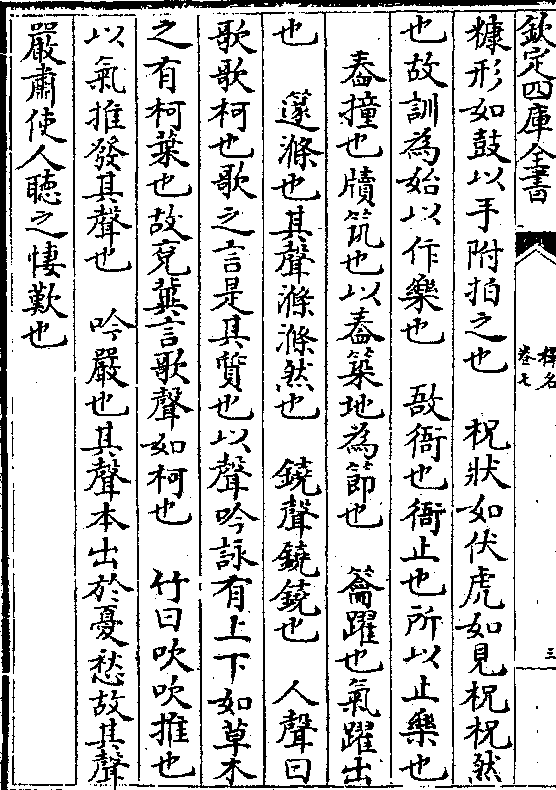 欽定四庫全書
釋名
卷七
三
糠形如鼓以手附拍之也　柷狀如伏虎如見柷柷然
也故訓為始以作樂也　敔衙也衙止也所以止樂也
舂撞也牘筑也以舂築地為節也　籥躍也氣躍出
也　篴滌也其聲滌滌然也　鐃聲鐃鐃也　人聲曰
歌歌柯也歌之言是其質也以聲吟詠有上下如草木
之有柯葉也故兖冀言歌聲如柯也　竹曰吹吹推也
以氣推發其聲也　吟嚴也其聲本出於憂愁故其聲
嚴肅使人聽之悽歎也